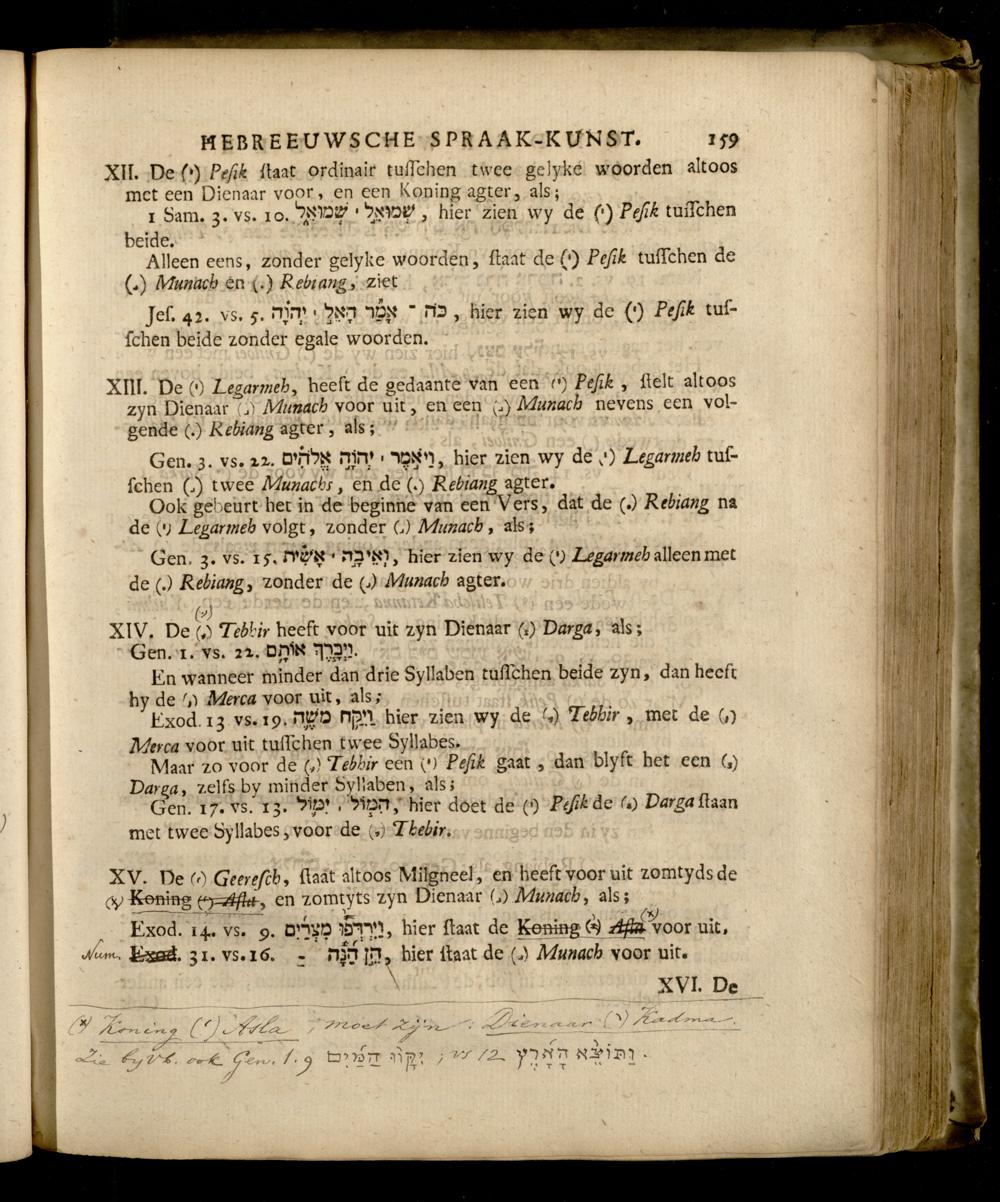 HEBREEUWSCHE SPRAAK-KUNST. 159
XII. De (׀) Pesik staat ordinair tusschen twee gelyke woorden altoos
met een Dienaar voor, en een Koning agter, als;
1 Sam. 3. vs. 10. שְׁמוּאֵל ׀ שְׁמוּאֵל, hier zien wy de (׀) Pesik tusschen
beide.
Alleen eens, zonder gelyke woorden, staat de (׀) Pesik tusschen de
(֣) Munach en (֗) Rebiang, ziet
Jes. 42. vs. 5. כֹּה - אָמַר הָאֵל ׀ יְהוָה, hier zien wy de (׀) Pesik tus-
schen beide zonder egale woorden.
XIII. De (׀) Legarmeh, heeft de gedaante van een (׀) Pesik, stelt altoos
zyn Dienaar (֣) Munach voor uit, en een (֣) Munach nevens een vol-
gende (֗) Rebiang agter, als;
Gen. 3. vs. 22. וַיֹּאמֶר ׀ יְהוָה אֱלֹהִים, hier zien wy de (׀) Legarmeh tus-
schen (֣) twee Munachs, en de (֗) Rebiang agter.
Ook gebeurt het in de beginne van een Vers, dat de (֗) Rebiang na
de (׀) Legarmeh volgt, zonder (֣) Munach, als;
Gen. 3. vs. 15. וְאֵיבָה ׀ אָשִׁית, hier zien wy de (׀) Legarmeh alleen met
de (֗) Rebiang, zonder de (֣) Munach agter.
XIV. De (֛) Tebhir heeft voor uit zyn Dienaar (֧) Darga, als;
Gen. 1. vs. 22. וַיְבָרֶךְ אוֹתָם.
En wanneer minder dan drie Syllaben tusschen beide zyn, dan heeft
hy de (֥) Merca voor uit, als;
Exod. 13 vs. 19. וַיִּקַּח מֹשֶׁה hier zien wy de (֛) Tebhir, met de (֥)
Merca voor uit tusschen twee Syllabes.
Maar zo voor de (֛) Tebhir een (׀) Pesik gaat, dan blyft het een (֧)
Darga, zelfs by minder Syllaben, als;
Gen. 17. vs. 13. הִמּוֹל ׀ יִמּוֹל, hier doet de (׀) Pesik de (֧) Darga staan
met twee Syllabes, voor de (֛) Thebir.
XV. De (֜) Geeresch, staat altoos Milgneel, en heeft voor uit zomtyds de
(x) Koning (֝) Asla, en zomtyts zyn Dienaar (֣) Munach, als;
Exod. 14. vs. 9. וַיִּרְדְּפוּ מִצְרַיִם, hier staat de Koning (֝) Asla (x) voor uit.
Num. Exod. 31. vs. 16. - הֵן הֵנָּה, hier staat de (֣) Munach voor uit.
XVI. De
(x) Koning (֝) Asla ; moet zijn : Dienaar (֨) Kadma.
Zie byvb. ook Gen. 1. 9 יִקָּווּ הַמַּיִם ; vs 12 וַתּוֹצֵא הָאָרֶץ.